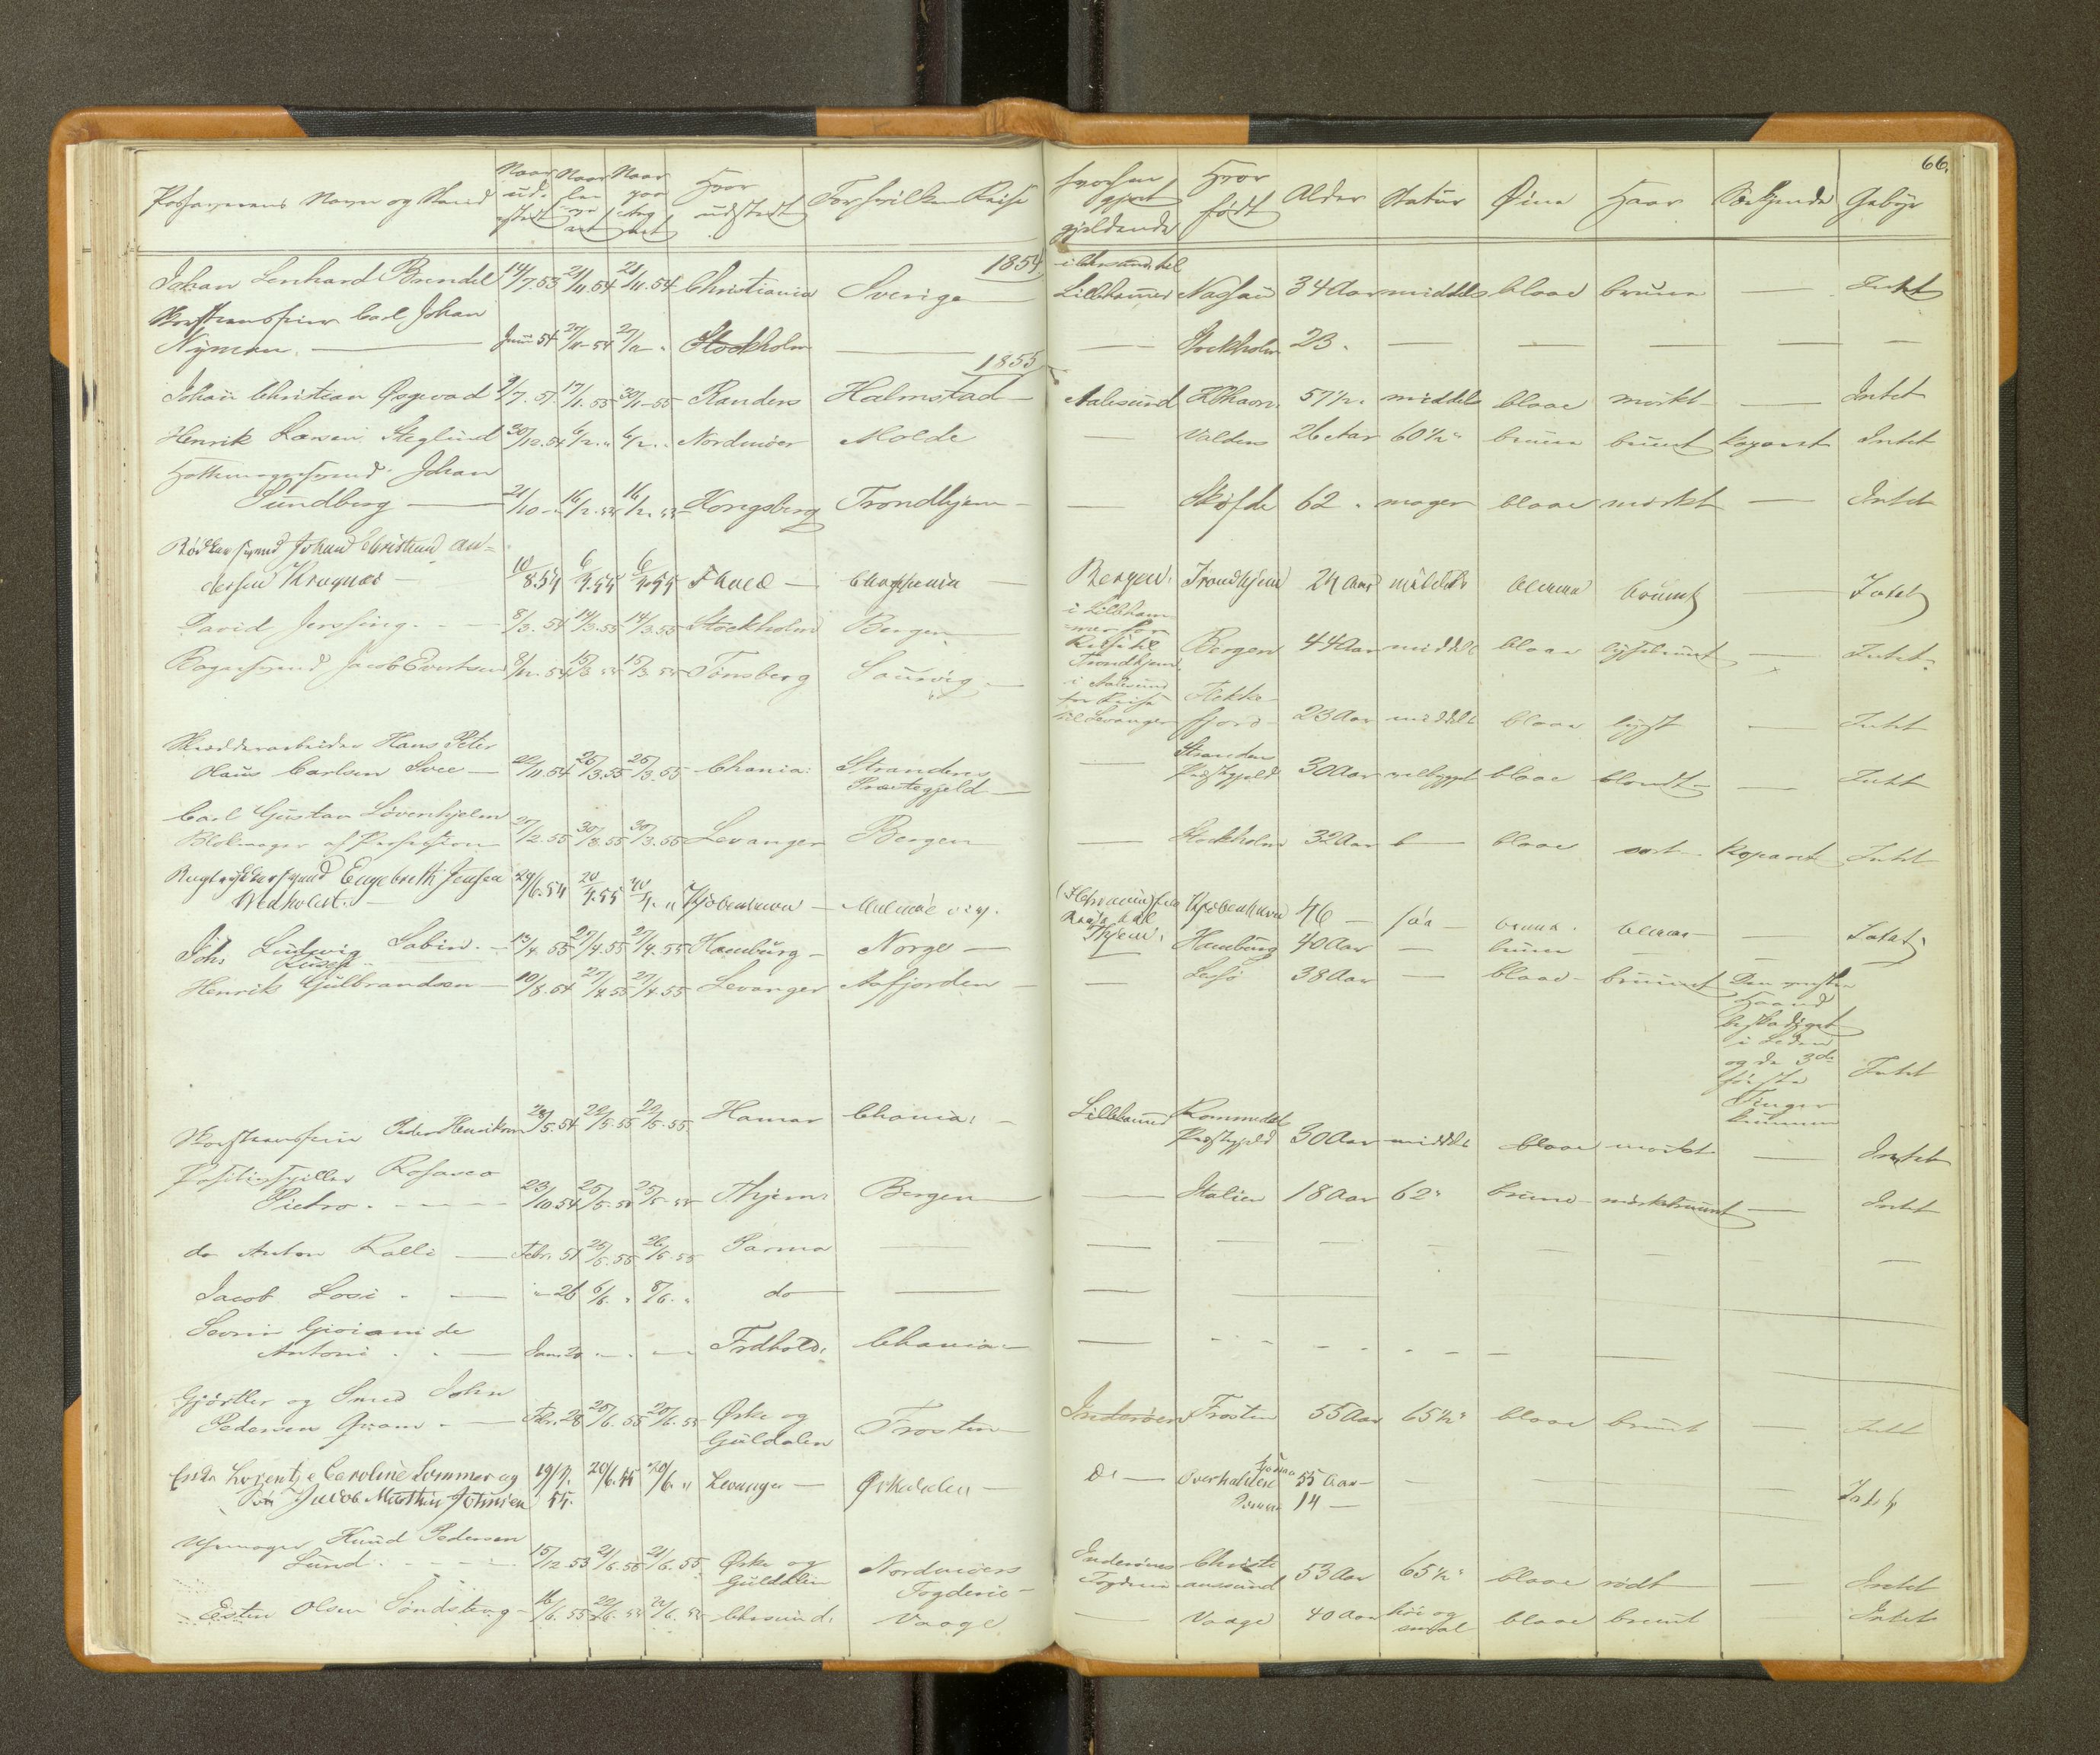 66.
Passagerens Navn og Stand | Naar udstedt | Naar leveret | Naar paategnet | Hvor udstedt | For hvilken Reise | hvorhen gjort gjældende | Hvor født | Alder | Statur | Øine | Haar | Særkjende | Gebyr
1854
Johan Lenhard Brendel | 14/7.53 | 21/11.54 | 21/11.54 | Christiania | Sverige | i Chrsund til Lillehammer | Nassau | 34 Aar | middels | blaae | bruun | — | Intet
Skorsteensfeier Carl Johan
Nyman. — | Juni 54 | 27/11-54 | 27/11 " | Stockholm | — | — | Stockholm | 23 " | — | — | — | — | —
1855
Johan Christian | 9/7.51. | 17/1.55 | 30/1-55 | Randers | Halmstad — | Aalesund | Kbhavn. | 57½ " | middels | blaae | mørkt | — | Intet
Henrik Larsen Steglund | 30/12.54 | 6/2. " | 6/2. " | Nordmöer | Molde | — | Valders | 26 Aar | 60½" | bruun | bruunt | koparret | Intet
Hattemagersvend Johan
Sundberg — | 21/10 - " | 16/2. 55 | 16/2. 55 | Kongsberg | Trondhjem - | — | Sköfde | 62 " | mager | blaae | mørkt | — | Intet
Bødkersvend Johan Christian An-
dersen Kragnæs - | 10/8.54 | 6/3.55 | 6/3.55 | Thjem — | Christiania — | Bergen. | Trondhjem | 24 Aar | middels | bruune | bruunt | — | Intet
David Jerssing. - — | 8/3. 54 | 14/3.55 | 14/3.55 | Stockholm | Bergen — | i Lillehammer for Reise til Trondhjem | Bergen | 44 Aar | middels | blaae | lysebruunt | — | Intet.
Bagersvend Jacob Evertsen | 8/12. 54 | 15/3 55 | 15/3 55 | Tönsberg | Laurvig — | i Aalesund for Reise til Levanger | Flekkefjord | 23 Aar | middels | blaae | lyst | — | Intet
Skrædderarbeider Hans Peter
Olaus Carlsen Svee — | 22/11.54 | 26/3.55 | 26/3.55 | Chania: | Strandens Præstegjeld — | — | Strandens Præstegjeld | 30 Aar | velbygget | blaae | blondt — | — | Intet
Carl Gustav Lövenhjelm
Blokmager af Profession | 27/12.55 | 30/3.55 | 30/3.55 | Levanger | Bergen | — | Stockholm | 32 Aar | — | blaae | sort - | koparret | Intet
Engebreth Jensen
— | 29/6.54 | 20/4.55 | 20/4. " | Kjøbenhavn — | Malmöe | Reise til Thjem. | Kjøbenhavn | 46 — | | bruune | | — | Intet
Johs Ludwig Sabin. — | 13/4. 55 | 27/4.55 | 27/4.55 | Hamburg - | Norge — | — | Hamburg | 40 Aar | — | bruun | —
Henrik Gulbrandsen — | 10/8.54 | 27/4.55 | 27/4.55 | Levanger | Aafjorden — | — | Lesje | 38 Aar | — | blaae - | bruunt | Den venstre Haand beskadiget i Ledene og de 3de første Finger krumme | Intet
Skorsteensfeier Peder Henriksen | 28/5.54 | 22/5.55 | 22/5.55. | Hamar | Chania: - | Lillehammer | Rommedal Præstegjeld | 30 Aar | middels | blaae | mørkt | — | Intet
Positivspiller Rosasco
Pietro. - - - - | 23/10.54 | 25/5-55 | 25/5-55 | Thjem: | Bergen — | — | Italien | 18 Aar | 62" | bruune - | mørkebruunt | — | Intet
do Anton Kalli — | Febr. 51 | 25/5.55 | 26/5.55 | Parma | — | — | — | — | — | — | — | — | —
Jacob Losi - — | " 26 | 6/6. " | 8/6. " | do | — | —
Sevrin Gioiani de
Antoni - - — | Jan. 20 | " - " | — | Frdhold: | Chania - | —
Gjörtler og Smed John
Pedersen Qvam - — | Febr. 28 | 20/6. 55 | 20/6. 55 | Örke og Guldalen | Frosten — | Inderöen | Frosten | 55 Aar | 65½" | blaae | bruunt | — | Intet
Enke Lorentze Caroline Sommer og
Søn Jacob Martin Johnsen | 19/4. 55. | 20/6.55 | 20/6. " | Levanger — | Ørkedalen — | Do — | Overhalden | 55 Aar — 14 — | — | — | — | — | Intet
Uhrmager Knud Pedersen
Lund. - - - - | 15/12.53 | 21/6.55 | 21/6.55. | Örke og Guldalen | Nordmöers Fogderie - | Inderöens Fogderie | Christiansund | 53 Aar | 65½" | blaae | rödt | — | Intet
Esten Olsen Söndsteng - | 16/6.55 | 22/6. 55 | 22/6. 55 | Chrsund: | Vaage | — | Vaage | 40 Aar | høi og smal | blaae | bruunt | | Intet